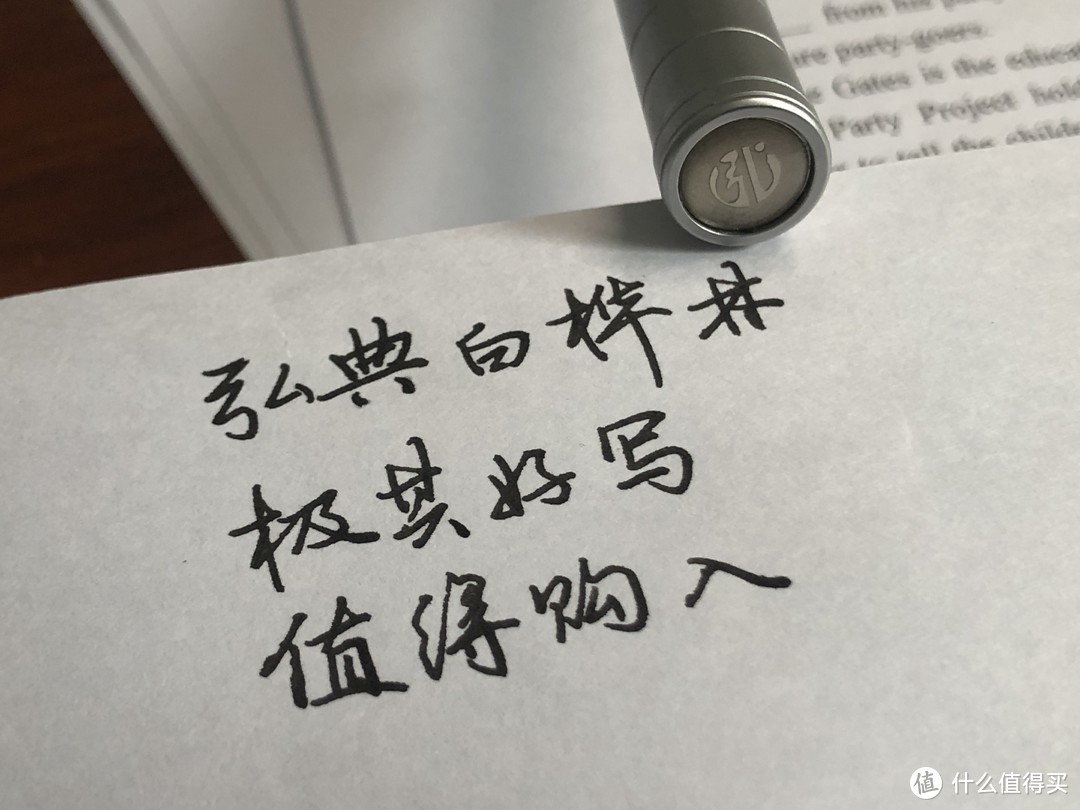 from his
are party-goers.
Gates is the educa
Party Project hold
to tell the childre
弘典白桦林
极其好写
值得购入
值 什么值得买